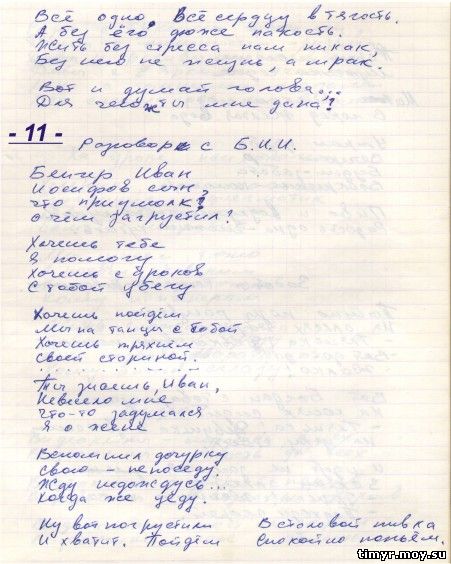 Всё одно. Всё сердцу в тягость.
А без его дюже пакость.
Жить без стресса нам никак,
Без него не жизнь, а мрак.
Вот и думай голова...
Для чегож ты мне дана?
- 11 -
Разговор с Б.И.И.
Бенгер Иван
Иосифов сын,
что приумолк?
о чём загрустил?
Хочешь тебе
Я помогу
Хочешь с уроков
С тобой убегу
Хочешь пойдём
Мы на танцы с тобой
Хочешь тряхнём
Своей стариной.
. . . . . . . . . . . . . . .
Ты знаешь, Иван,
Невесело мне
Что-то задумался
Я о жене
Вспомнил дочурку
Свою - непоседу.
Жду недождусь...
Когда же уеду.
Ну вот погрустили
И хватит. Пойдём
В столовой пивка
Спокойно попьём.
timyr.moy.su